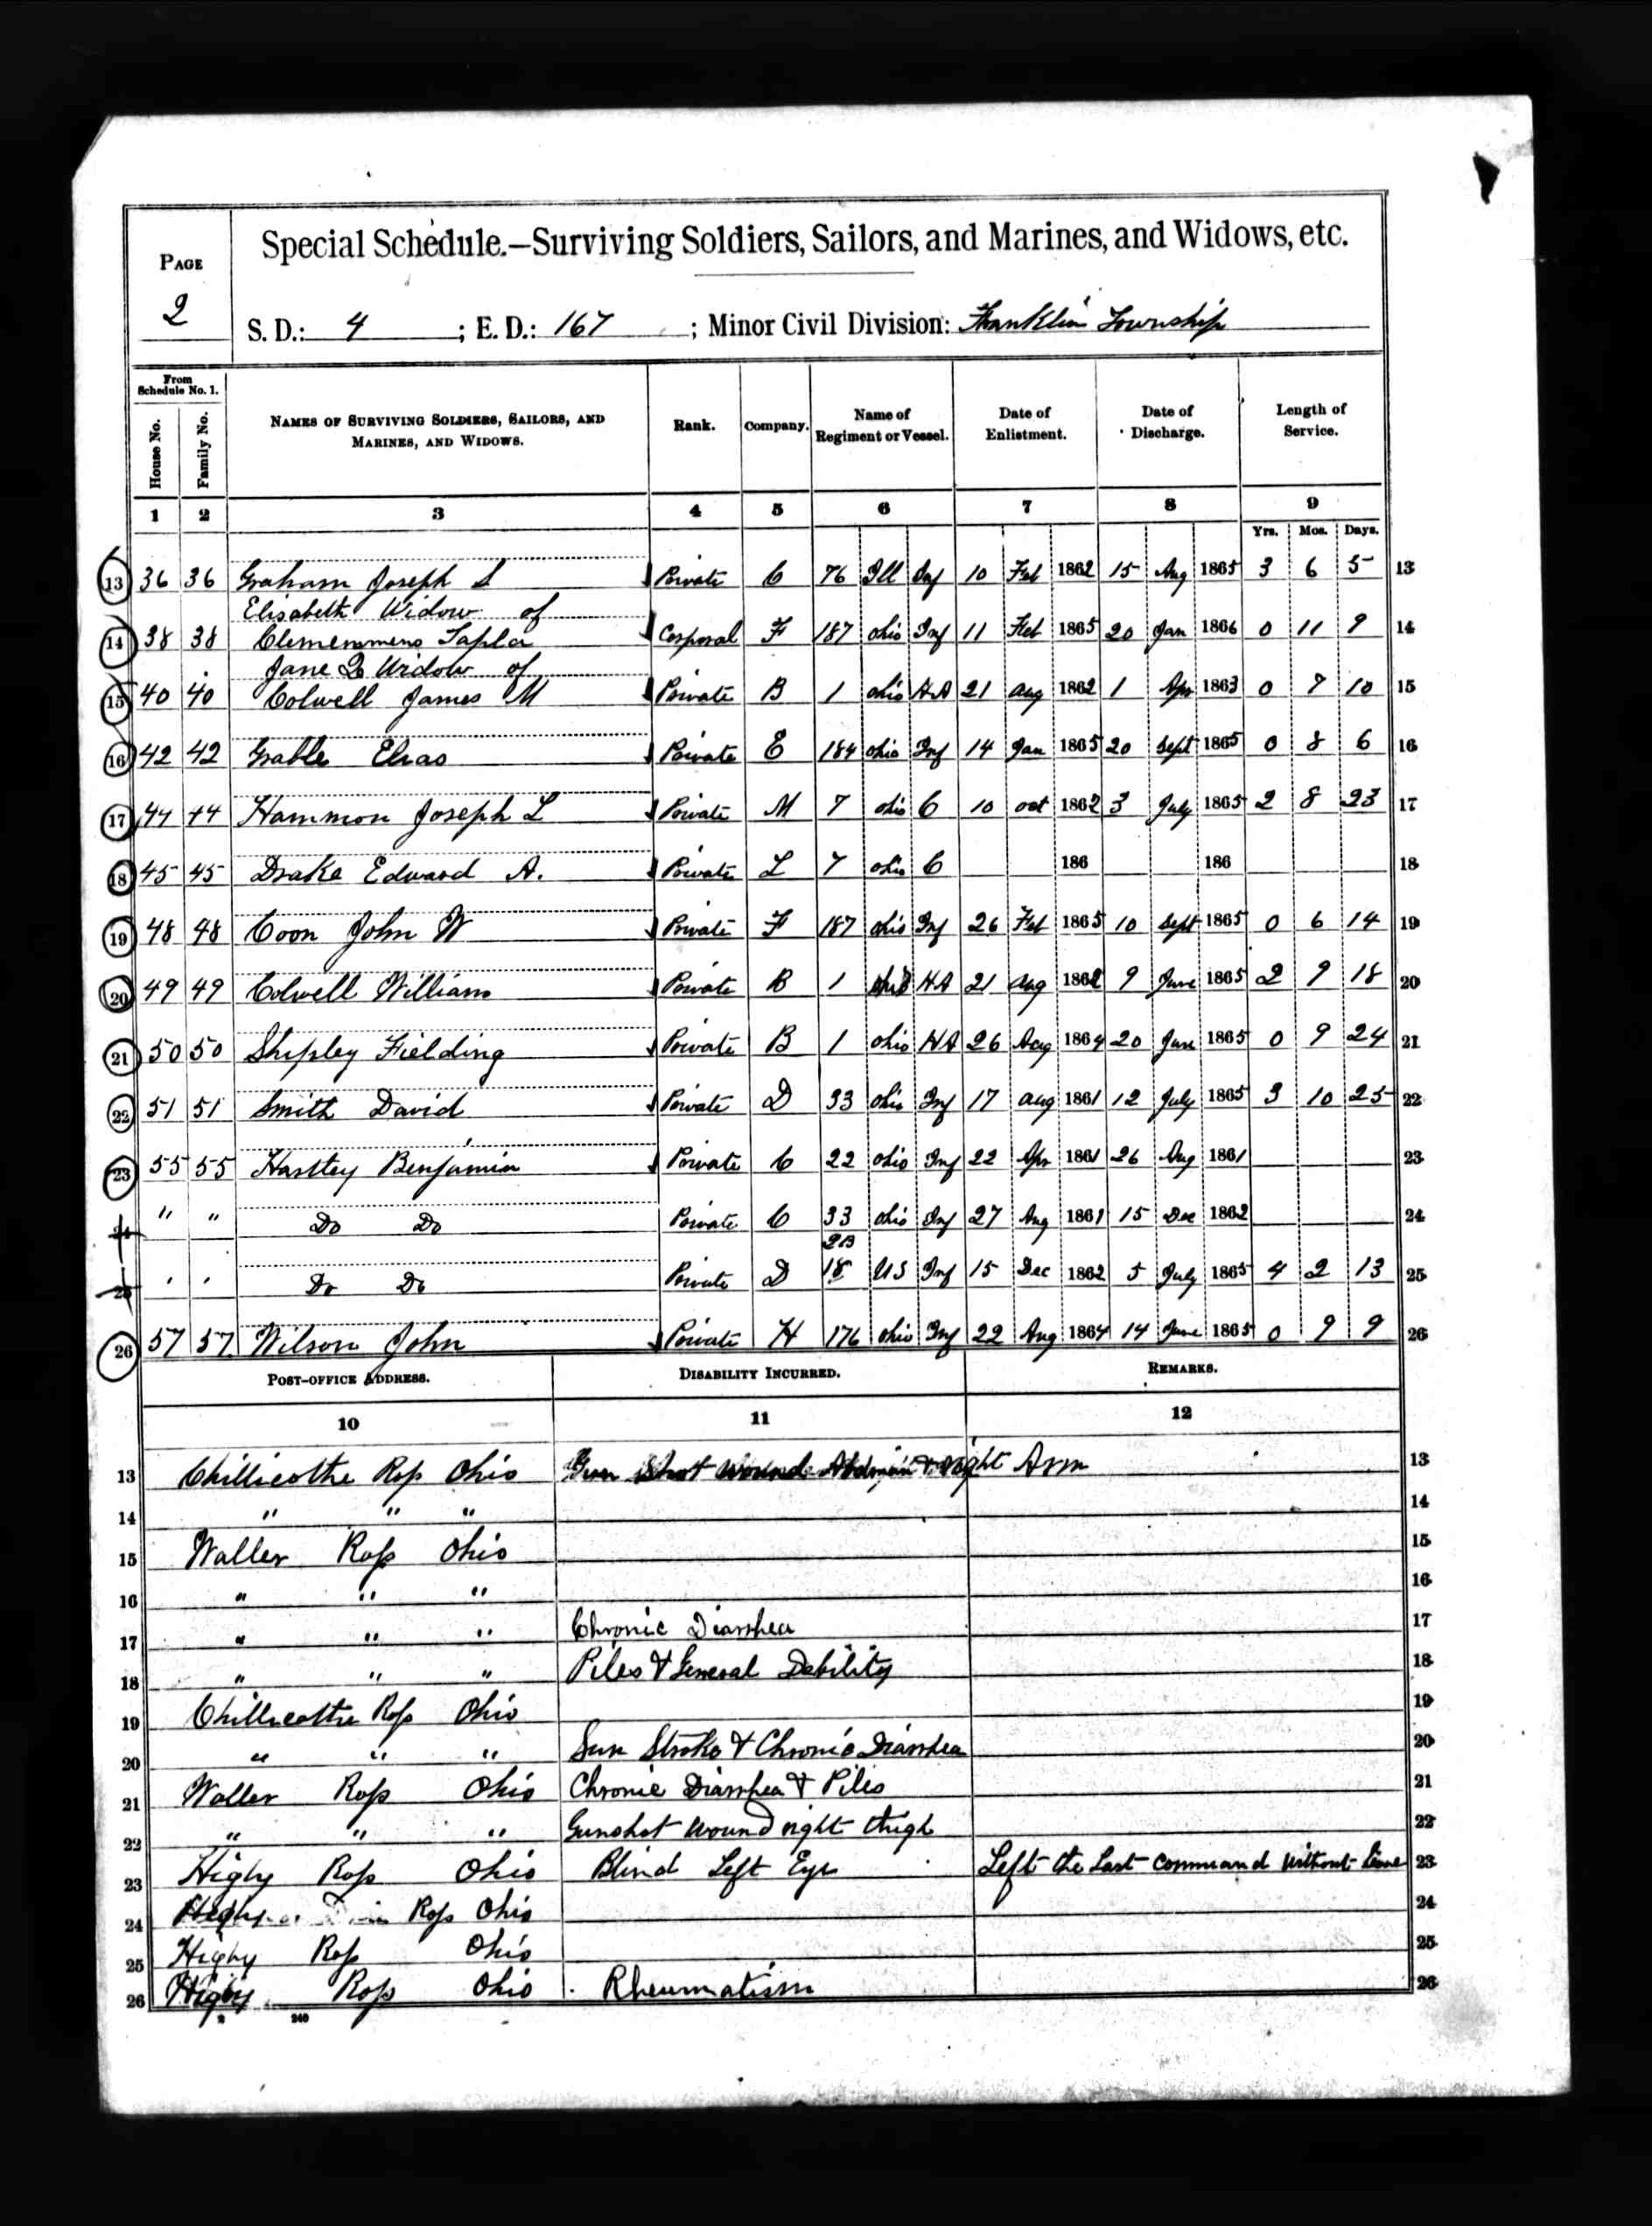 PAGE
2
Special Schedule.—Surviving Soldiers, Sailors, and Marines, and Widows, etc.
S. D.: 4 ; E. D.: 167 ; Minor Civil Division: Franklin Township
From Schedule No. 1.
House No.
Family No.
NAMES OF SURVIVING SOLDIERS, SAILORS, AND MARINES, AND WIDOWS.
Rank.
Company.
Name of Regiment or Vessel.
Date of Enlistment.
Date of Discharge.
Length of Service.
1 2 3 4 5 6 7 8 9
Yrs. Mos. Days.
13 36 36 Graham Joseph S Private C 76 Ill Inf 10 Feb 1862 15 Aug 1865 3 6 5 13
Elisabeth Widow of
14 38 38 Corporal F 187 ohio Inf 11 Feb 1865 20 Jan 1866 0 11 9 14
Jane Widow of
15 40 40 Colwell James M Private B 1 ohio HA 21 aug 1862 1 Apr 1863 0 7 10 15
16 42 42 Grable Elias Private E 184 ohio Inf 14 Jan 1865 20 Sept 1865 0 8 6 16
17 44 44 Hammon Joseph L Private M 7 ohio C 10 oct 1862 3 July 1865 2 8 23 17
18 45 45 Drake Edward A. Private L 7 ohio C 186 186 18
19 48 48 Coon John W Private F 187 ohio Inf 26 Feb 1865 10 Sept 1865 0 6 14 19
20 49 49 Colwell William Private B 1 ohio HA 21 Aug 1862 9 June 1865 2 9 18 20
21 50 50 Shipley Fielding Private B 1 ohio HA 26 Aug 1864 20 June 1865 0 9 24 21
22 51 51 Smith David Private D 33 ohio Inf 17 aug 1861 12 July 1865 3 10 25 22
23 55 55 Hartley Benjamin Private C 22 ohio Inf 22 Apr 1861 26 Aug 1861 23
24 " " Do Do Private C 33 ohio Inf 27 Aug 1861 15 Dec 1862 24
2B
25 " " Do Do Private D 18 US Inf 15 Dec 1862 5 July 1865 4 2 13 25
26 57 57 Wilson John Private H 176 ohio Inf 22 Aug 1864 14 June 1865 0 9 9 26
POST-OFFICE ADDRESS. DISABILITY INCURRED. REMARKS.
10 11 12
13 Chillicothe Ross Ohio Gun Shot Wound Abdomin & right Arm 13
14 " " " 14
15 Waller Ross Ohio 15
16 " " " 16
17 " " " Chronic Diarrhea 17
18 " " " Piles & General Debility 18
19 Chillicothe Ross Ohio 19
20 " " " Sun Stroke & Chronic Diarrhea 20
21 Waller Ross Ohio Chronic Diarrhea & Piles 21
22 " " " Gunshot wound right thigh 22
23 Higby Ross Ohio Blind Left Eye Left the Last command without leave 23
24 Higby Ross Ohio 24
25 Higby Ross Ohio 25
26 Higby Ross Ohio Rheumatism 26
240